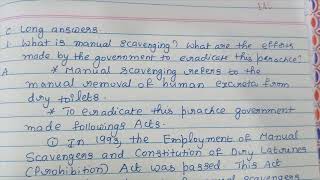 C. Long answers
1. What is manual scavenging? What are the efforts
made by the government to eradicate this peractice?
A * Manual scavenging refers to the
manual removal of human excreta from
dry toilets.
* To eradicate this pracice government
made followings Acts.
① In 1993, the Employment of Manual
Scavengers and Constitution of Dry Latrines
(Prohibition) Act was passed. This Act
scavengers